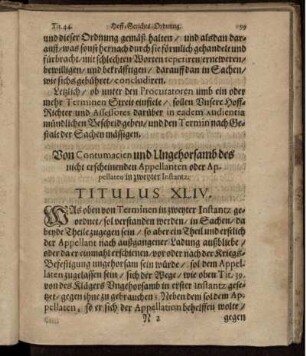 Tit. 44. Hoff-Gerichts-Ordnung. 159
und dieser Ordnung gemäß halten / und alsdan dar-
auff / was sonst hernach durch sie förmlich gehandelt und
fürbracht / mit schlechten Worten repetiren / erneweren /
bewilligen / und bekräfftigen / darauff dan in Sachen /
wie sichs gebühret / concludiren.
Letzlich / ob unter den Procutatoren umb ein oder
mehr Terminen Streit einfiele / sollen Unsere Hoff-
Richter und Assessores darüber in eadem audientia
mündlichen Bescheid geben / und den Termin nach Ge-
stalt der Sachen mässigen.
Von Contumacien und Ungehorsamb des
nicht erscheinenden Appellanten oder Ap-
pellaten in zweyter Instantz.
TITULUS XLIV.
WAs oben von Terminen in zweyter Instantz ge-
ordnet / sol verstanden werden / in Sachen / da
beyde Theile zugegen sein / so aber ein Theil und erstlich
der Appellant nach außgangener Ladung ausbliebe /
oder da er einmahl erschienen / vor oder nach der Kriegs-
Befestigung ungehorsam sein würde / sol dem Appel-
laten zugelassen sein / sich der Wege / wie oben Tit. 39.
von des Klägers Ungehorsamb in erster instantz gese-
tzet / gegen ihne zu gebrauchen: Neben dem sol dem Ap-
pellaten, so er sich der Appellation behelffen wolte /
N 2 gegen